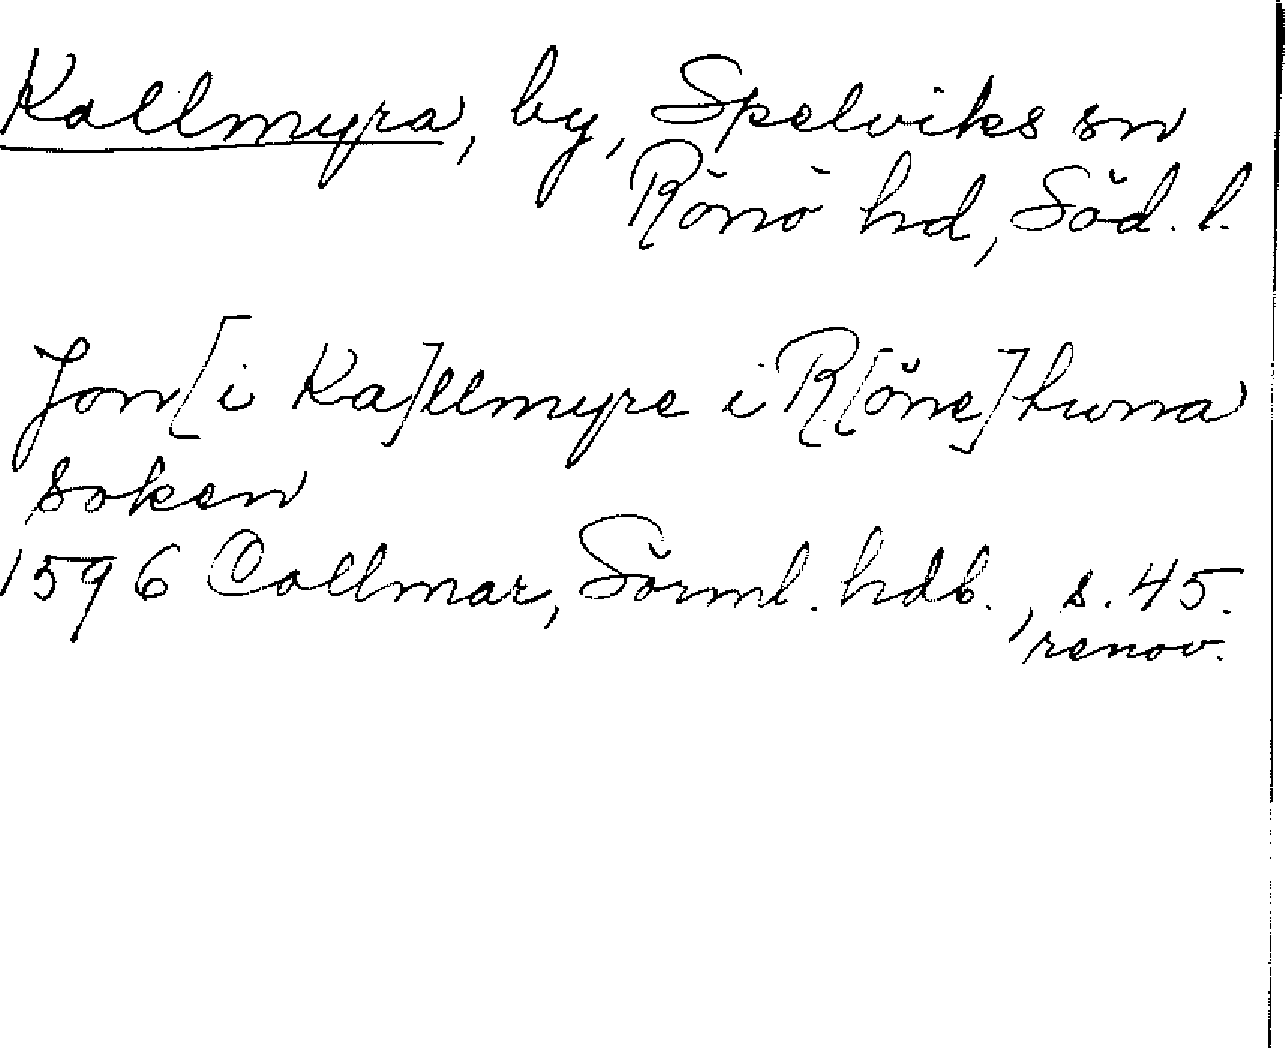 Kallmyra, by, Spelviks sn
Rönö hd, Söd. l.
Jon [i Ka]llmyre i R[öne]huna
soken
1596 Collmar, Sörml. hdb., s. 45.
renov.